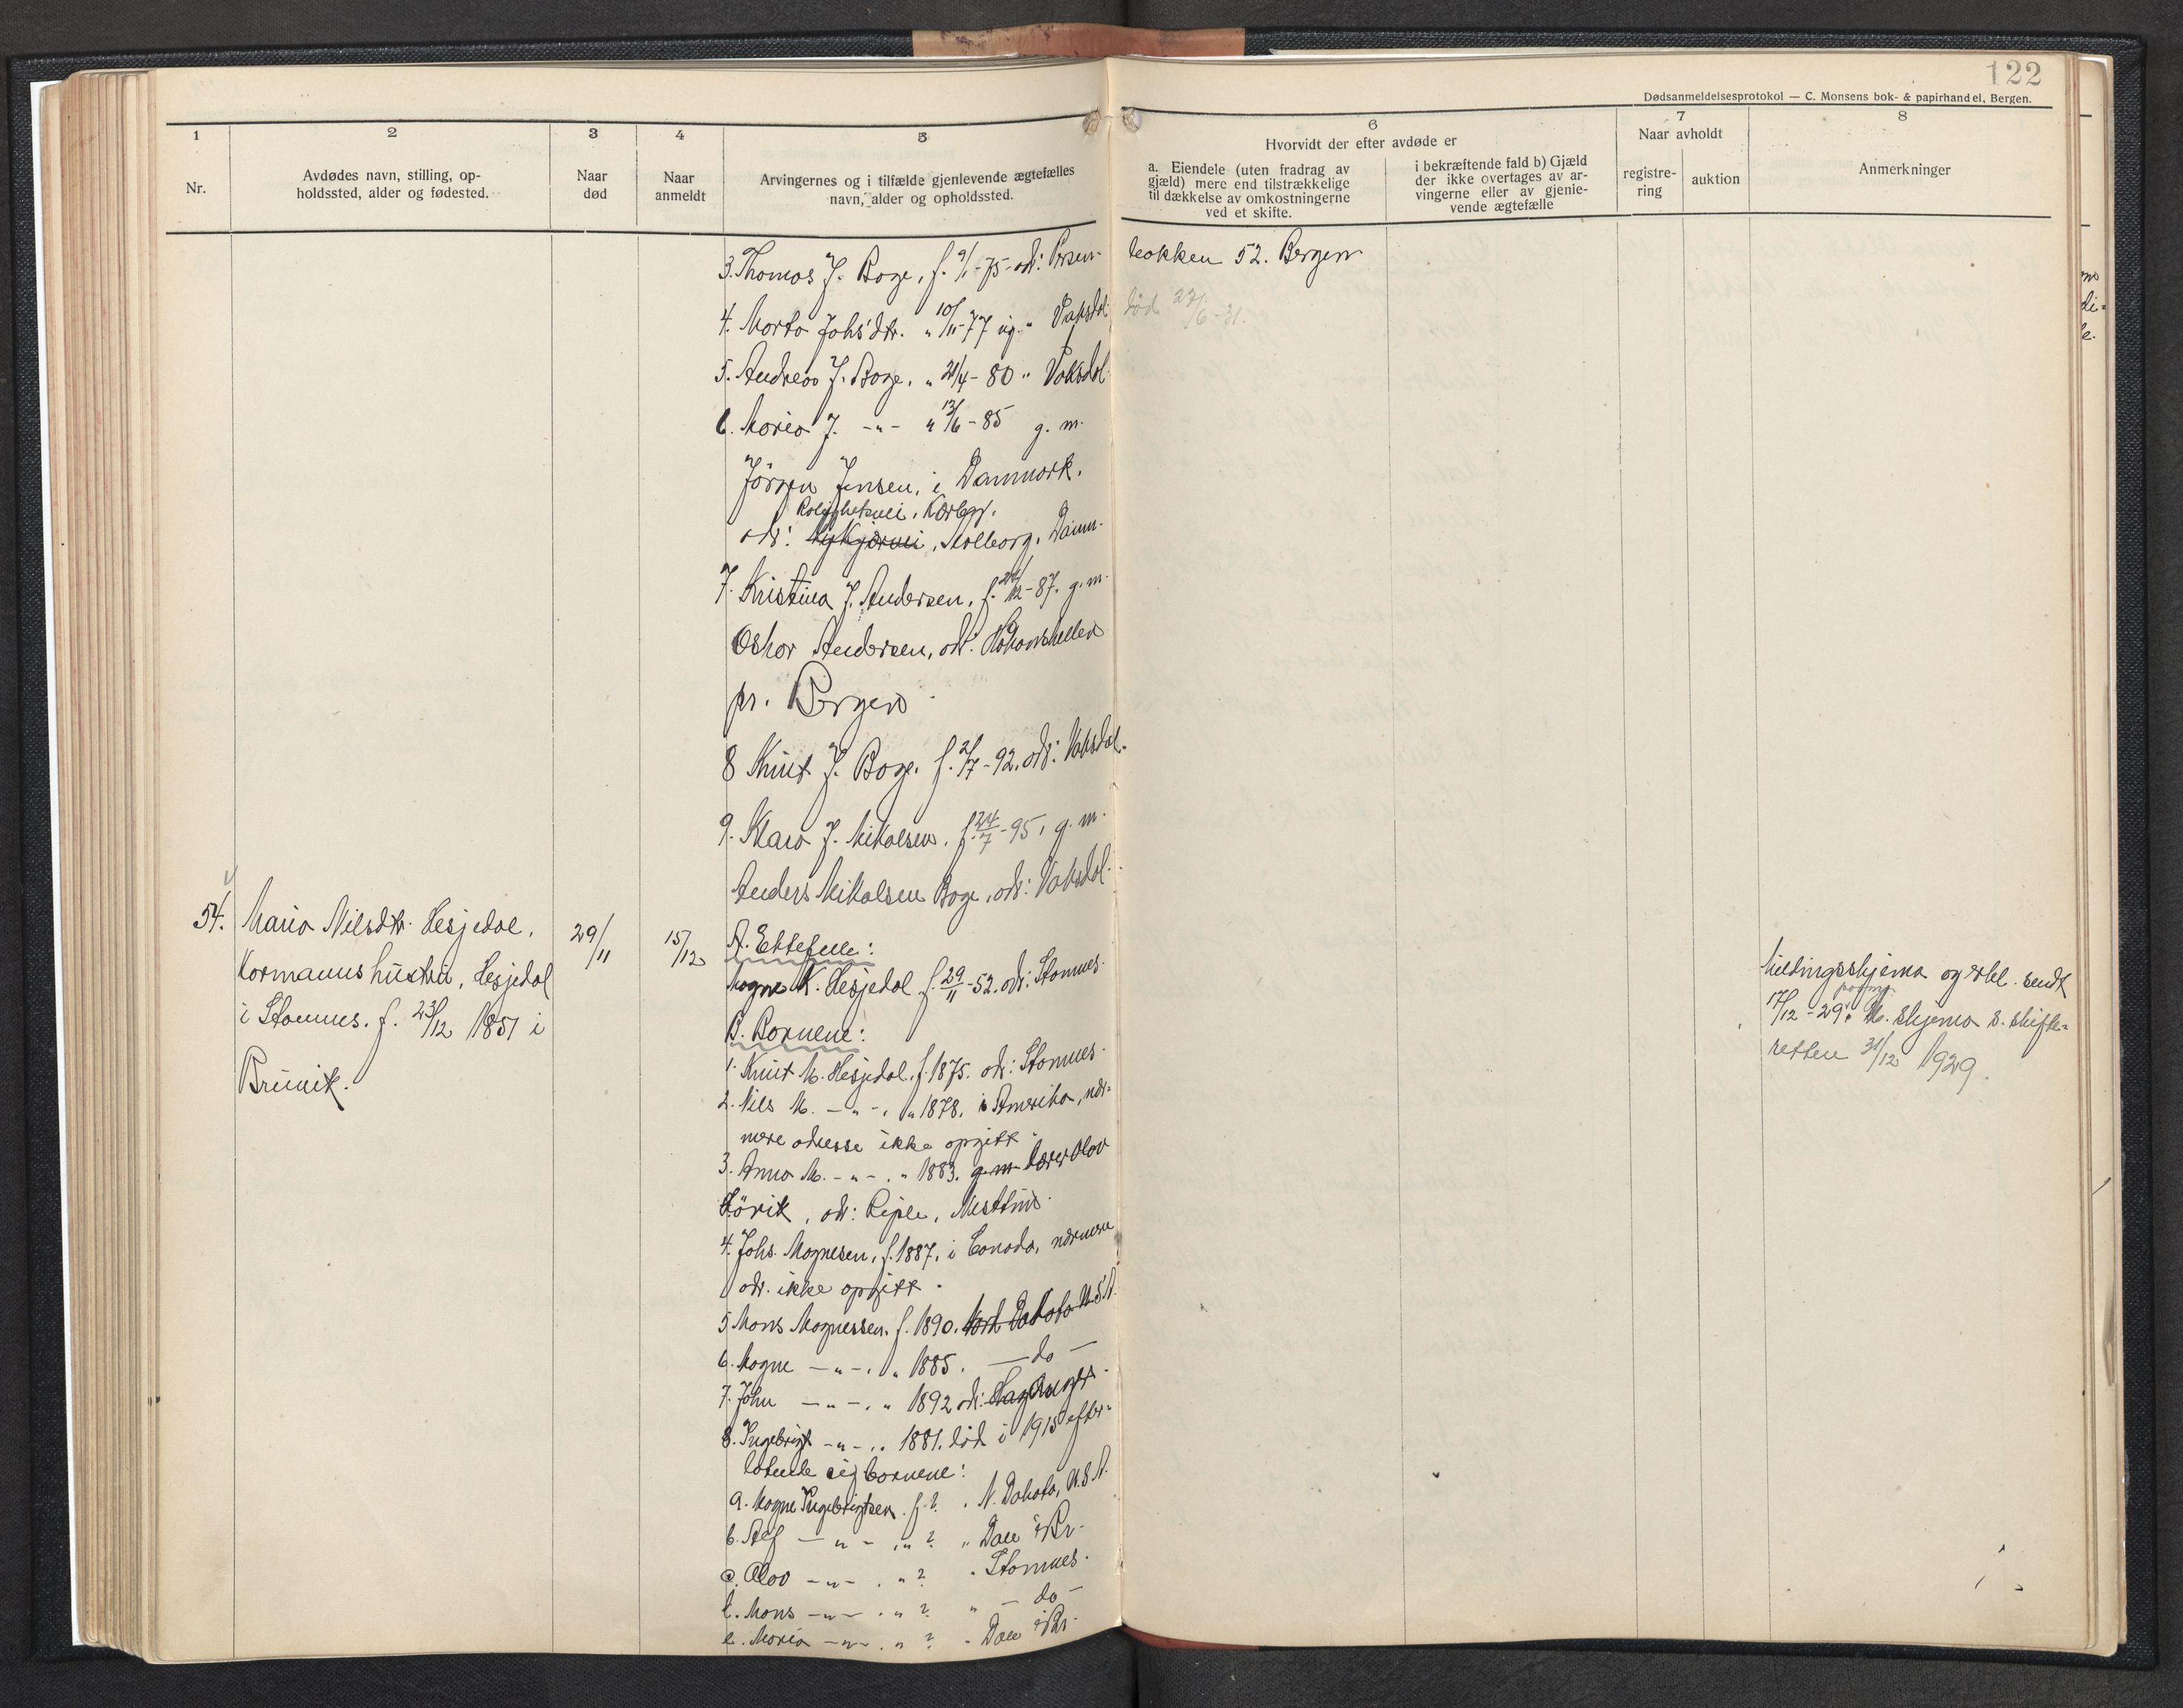 122
Dødsanmeldelsesprotokol — C. Monsens bok- & papirhandel, Bergen.
1 2 3 4 5 6 7 8
Nr.
Avdødes navn, stilling, op-
holdssted, alder og fødested.
Naar
død
Naar
anmeldt
Arvingernes og i tilfælde gjenlevende ægtefælles
navn, alder og opholdssted.
Hvorvidt der efter avdøde er
a. Eiendele (uten fradrag av
gjæld) mere end tilstrækkelige
til dækkelse av omkostningerne
ved et skifte.
i bekræftende fald b) Gjæld
der ikke overtages av ar-
vingerne eller av gjenle-
vende ægtefælle
Naar avholdt
registre-
ring
auktion
Anmerkninger
3. Thomas J. Boge, f. 9/1-75- adr: bakken 52. Bergen
4. Marta Johs'dtr. " 10/11-77 ug. " Vaksdal. død 27/6-31.
5. Andreas J. Boge. " 21/4-80 " Vaksdal.
6. Maria J. -"- " 13/6-85 g. m.
Jörgen Jensen, i Danmark.
adr: , Aalborg. Danm.
7. Kristina J. Andersen, f. 24/12-87. g. m.
Oskar Andersen, adr: Håkonshella
pr. Bergen
8 Knut J. Boge. f. 2/7-92. adr: Vaksdal.
9. Klara J. Mikalsen. f. 24/7-95, g. m.
Anders Mikalsen Boge, adr: Vaksdal.
54. Maria Nilsdtr. Hesjedal,
Kormanns hustru, Hesjedal
i Stamnes. f. 23/12 1851 i
Bruvik.
29/11
15/12
A. Ektefelle:
Magne K. Hesjedal f. 29/11-52. adr: Stamnes.
B. Barnene:
1. Knut M. Hesjedal, f. 1875. adr: Stamnes.
2. Nils M. -"-, " 1878. i Amerika, nær-
mere adresse ikke opgitt.
3. Anna M. -"-. " 1883. g. m. lærer Olav
, adr: Riple, Nesttun.
4. Johs. Magnesen, f. 1887. i Canada, nærmere
adr. ikke opgitt.
5. Mons Magnessen. f. 1890. Nord Dakota U.S.A.
6. Magne -"-. " 1885. — do —
7. John -"-. " 1892 adr: Haugsunger.
8. Ingebrigt -"-. " 1881. död i 1915 efter-
latende sig barnene:
a. Magne Ingebrigtsen. f. ? . N. Dakota, U.S.A.
b. Alf -"- . " ? " Dale i Br.
c. Olav -"- . " ? " Stamnes.
d. Mons -"- . " ? " — do —
e. Maria -"- . " ? " Dale i Br.
Meldingsskjema og erkl. sendt
17/12-29. M. skjema s. skifte-
retten 31/12 1929.